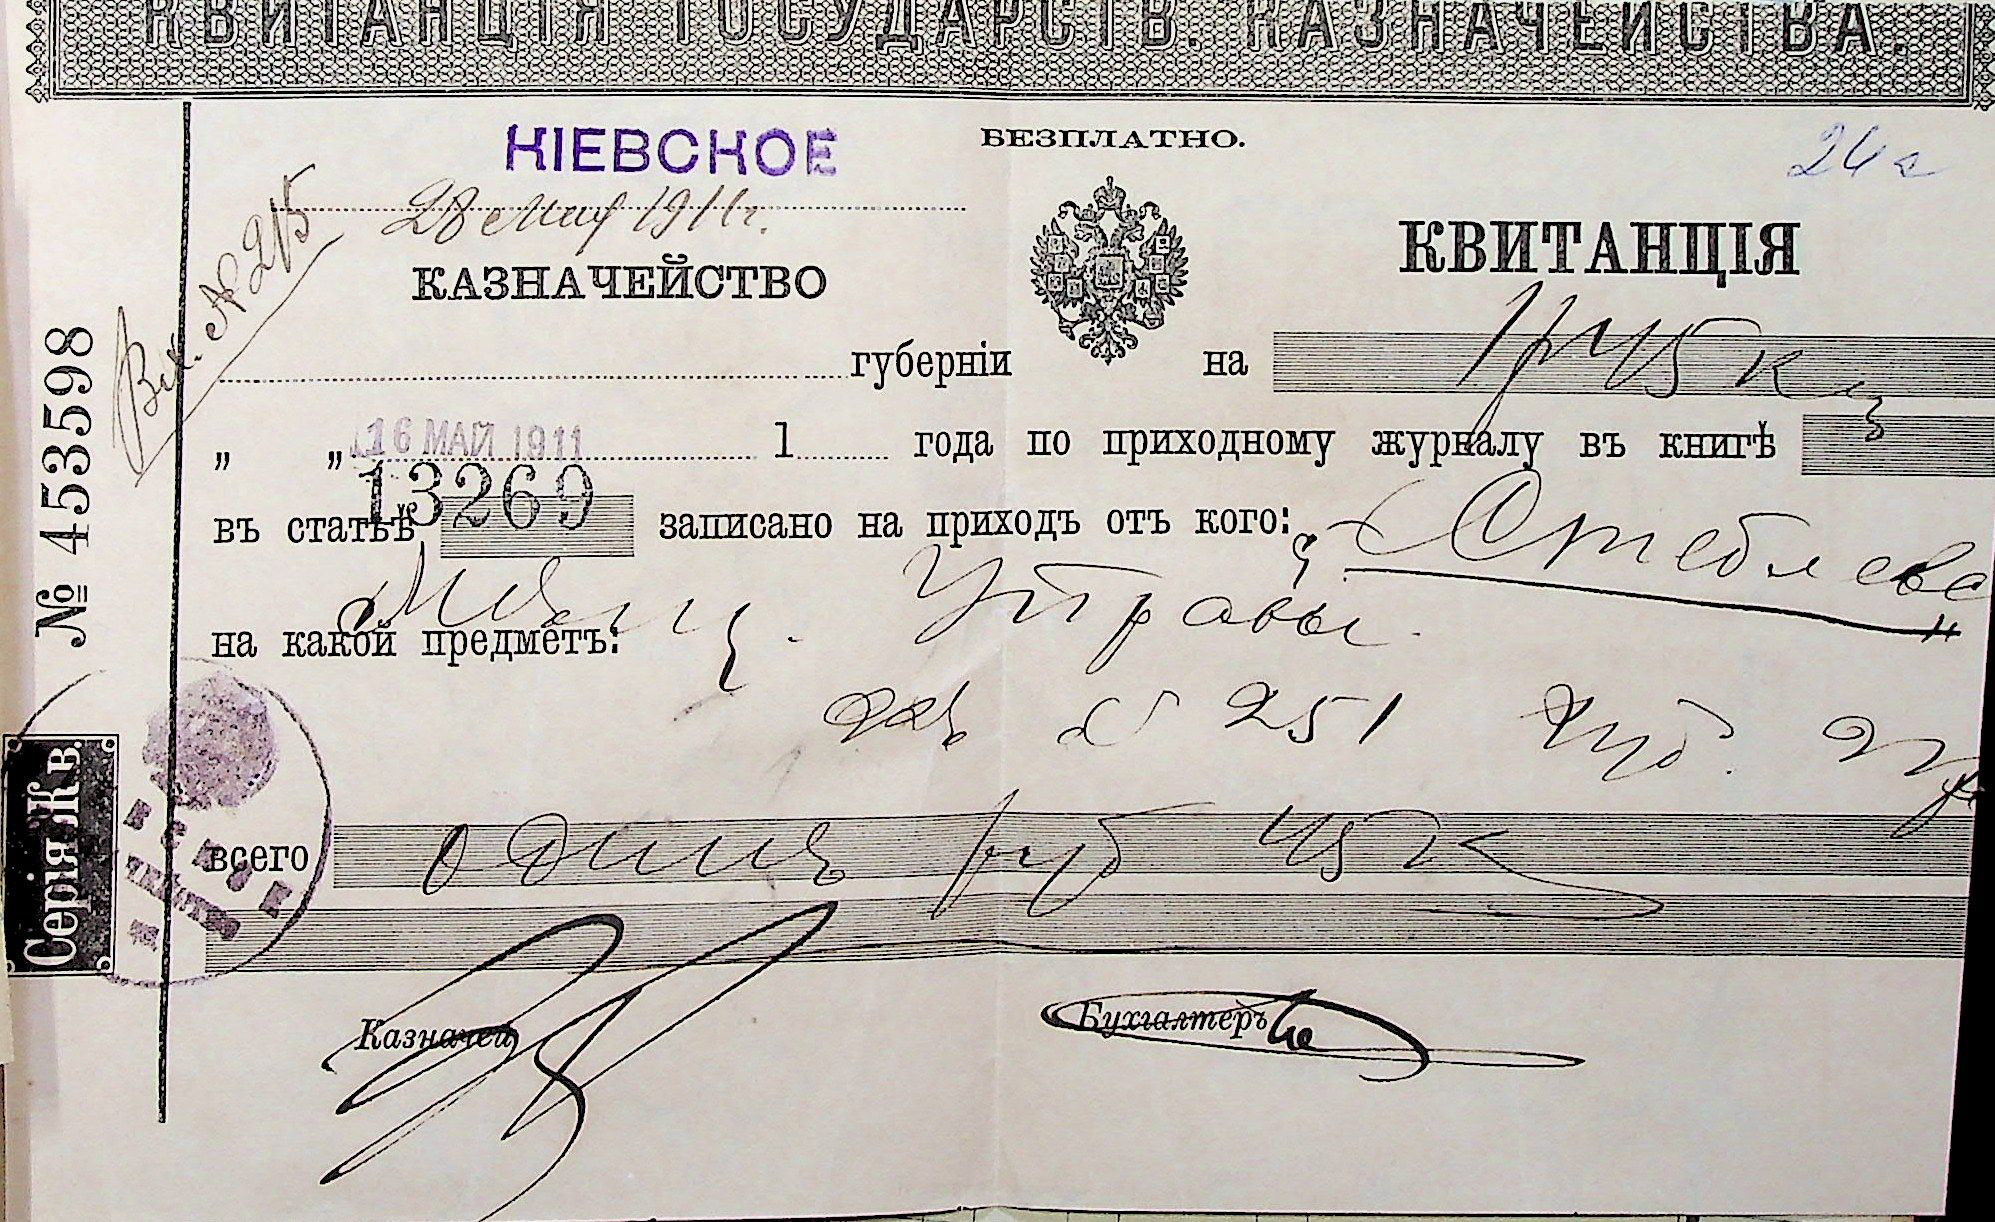 КВИТАНЦІЯ ГОСУДАРСТВ. КАЗНАЧЕЙСТВА.
КІЕВСКОЕ
БЕЗПЛАТНО.
28 мая 1911 г.
Вх. № 215
КАЗНАЧЕЙСТВО
КВИТАНЦІЯ
губерніи на 1 р 45 к
16 МАЙ 1911 1 года по приходному журналу въ книгѣ
въ статьѣ 13269 записано на приходъ отъ кого: Стеблевс
на какой предметъ: Мѣщ. Управы.
№ 251
всего одинъ руб 45 к
Казначей
Бухгалтеръ
№ 453598
Серія Жв.